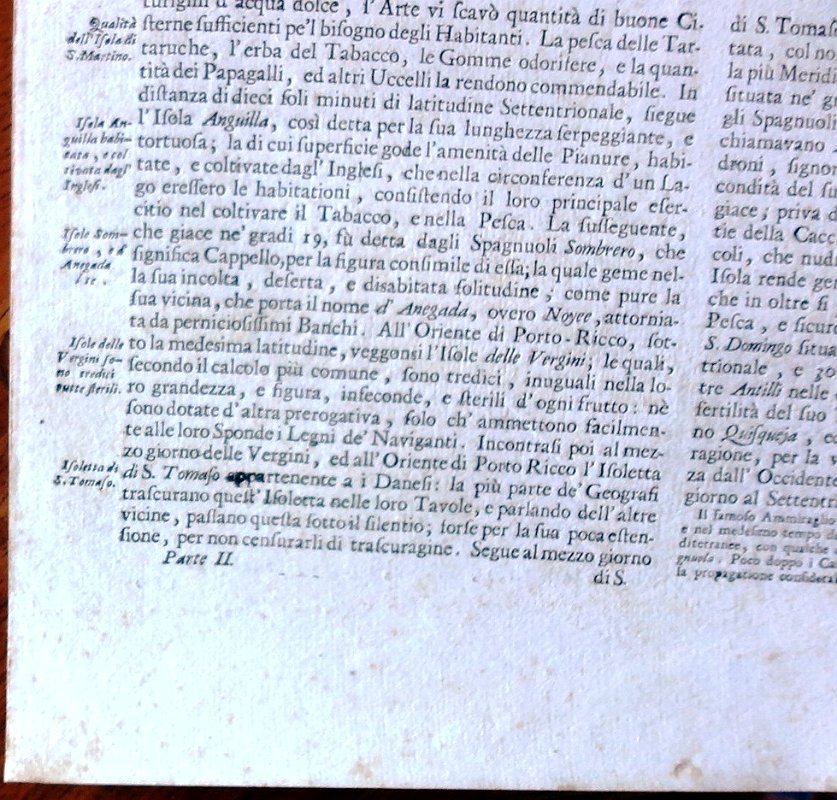 d'acqua dolce, l'Arte vi ſcavò quantità di buone Ci-
ſterne ſufficienti pe'l biſogno degli Habitanti. La peſca delle Tar-
taruche, l'erba del Tabacco, le Gomme odorifere, e la quan-
tità dei Papagalli, ed altri Uccelli la rendono commendabile. In
diſtanza di dieci ſoli minuti di latitudine Settentrionale, ſiegue
l'Iſola Anguilla, così detta per la ſua lunghezza ſerpeggiante, e
tortuoſa; la di cui ſuperficie gode l'amenità delle Pianure, habi-
tate, e coltivate dagl' Ingleſi, che nella circonferenza d'un La-
go ereſſero le habitationi, conſiſtendo il loro principale eſer-
citio nel coltivare il Tabacco, e nella Peſca. La ſuſſeguente,
che giace ne' gradi 19, fù detta dagli Spagnuoli Sombrero, che
ſignifica Cappello, per la figura conſimile di eſſa; la quale geme nel-
la ſua incolta, deſerta, e disabitata ſolitudine, come pure la
ſua vicina, che porta il nome d'Anegada, overo Noyee, attornia-
ta da pernicioſiſſimi Banchi. All'Oriente di Porto-Ricco, ſot-
to la medeſima latitudine, veggonſi l'Iſole delle Vergini; le quali,
ſecondo il calcolo più comune, ſono tredici, inuguali nella lo-
ro grandezza, e figura, infeconde, e ſterili d'ogni frutto: nè
ſono dotate d'altra prerogativa, ſolo ch'ammettono facilmen-
te alle loro Sponde i Legni de' Naviganti. Incontraſi poi al mez-
zo giorno delle Vergini, ed all'Oriente di Porto Ricco l'Iſoletta
di S. Tomaſo appartenente a i Daneſi: la più parte de' Geografi
traſcurano queſt'Iſoletta nelle loro Tavole, e parlando dell'altre
vicine, paſſano queſta ſotto il ſilentio; forſe per la ſua poca eſten-
ſione, per non cenſurarli di traſcuragine. Segue al mezzo giorno
Parte II.
di S.
Qualità
dell'Iſola di
S. Martino.
Iſola An-
guilla habi-
tata, e col-
tivata dagl'
Ingleſi.
Iſole Som-
brero, ed
Anegada
Iſole delle
Vergini ſo-
no tredici
tutte ſterili.
Iſoletta di
S. Tomaſo.
di S. Tomaſo
tata, col no
la più Merid
ſituata ne' g
gli Spagnuoli
chiamavano
droni, ſignor
condità del ſu
giace; priva
tie della Cacc
coli, che nud
Iſola rende gen
che in oltre ſi
Peſca, e ſicur
S. Domingo ſitua
trionale, e 30
tre Antilli nelle
fertilità del ſuo
no Quiſqueja, e
ragione, per la v
za dall'Occidente
giorno al Settentr
Il famoſo Ammiragli
e nel medeſimo tempo d
diterranee, con qualche
gnuola. Poco doppo i Ca
la propagatione conſidera